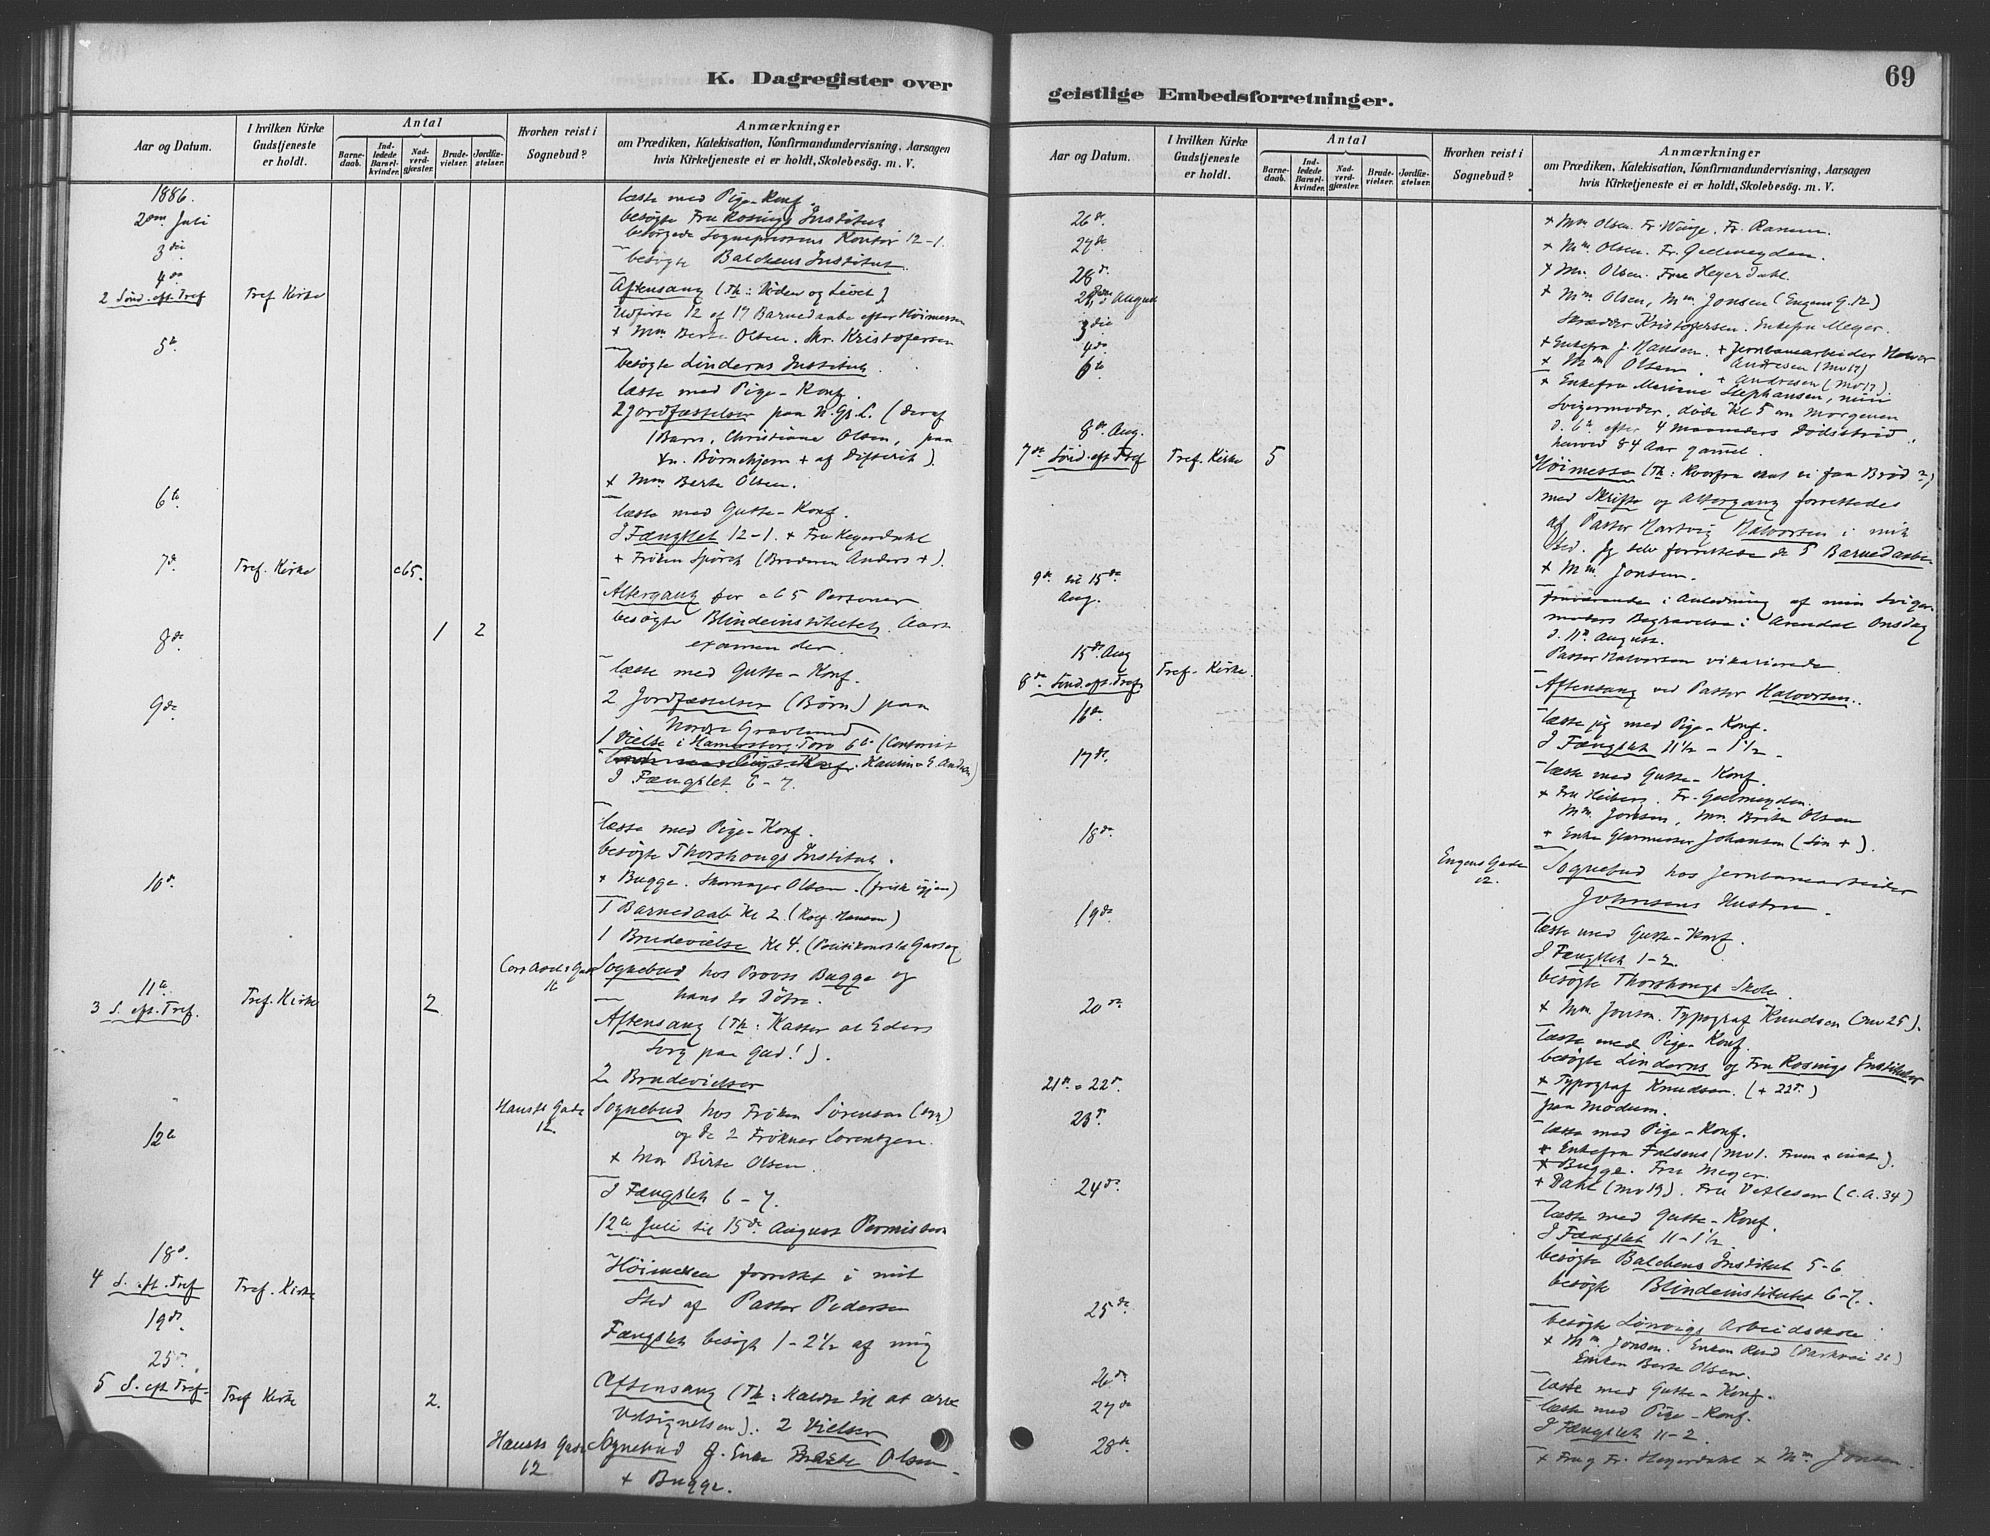 K. Dagregister over
Aar og Datum.
I hvilken Kirke Gudstjeneste er holdt.
Antal
Barne-daab.
Ind-ledede Barsel-kvinder.
Nad-verd-gjæster.
Brude-vielser.
Jordfæ-stelser.
Hvorhen reist i Sognebud?
Anmærkninger
om Prædiken, Katekisation, Konfirmandundervisning, Aarsagen
hvis Kirketjeneste ei er holdt, Skolebesøg. m. V.
1886.
læste med Pige-Konf.
2den Juli
besøgte Fru Rosings Institut
besørgede Sognepræstens Kontor 12-1.
3die
besøgte Balchens Institut.
4de
2 Sønd. eft. Tref Tref Kirke
Aftensang (Th: Døden og Livet)
Udførte 12 af 17 Barnedaabe efter Høimessen
+ Mm Berte Olsen. Skr. Kristofersen
5te
besøgte Linderns Institut.
læste med Pige-Konf.
2 Jordfæstelser paa N. Gr. L. (deraf
1 Barn, Christiane Olsen, paa
Børnehjem + af Difterit).
+ Mm Berte Olsen.
6te
læste med Gutte-Konf.
I Fængslet 12-1. + Fru Heyerdahl
+ Frøken Spørck (Broderen Anders +).
7de Tref. Kirke c65.
Altergang for c65 Personer
besøgte Blindeinstitutet. Aars-
examen der.
8de 1 2
læste med Gutte-Konf.
2 Jordfæstelser (Børn) paa
Nordre Gravlund
1 Vielse i Hammersborg Torv 6b (Contorist
9de
I Fængslet 6-7.
læste med Pige-Konf.
besøgte Thorshougs Institut.
10de
+ Bugge. Skomager Olsen. (frisk igjen)
1 Barnedaab Kl 2. (Hansen)
1 Brudevielse Kl 4.
Gade 16
Sognebud hos Provst Bugge og
hans to Døtre.
11te
3 S. eft. Tref. Tref. Kirke 2
Aftensang (Th: Kaster al Eders
Sorg paa Gud!).
2 Brudevielser
Hausts Gade 12.
Sognebud hos Frøken Sørensen
og de 2 Frøkner Lorentzen.
12te
+ Mm Birte Olsen.
I Fængslet 6-7.
12te Juli til 15de August Permission
18de
4 S. eft. Tref Tref. Kirke
Høimessen forrettet i mit
Sted af Pastor Pedersen
19de
Fængslet besøgt 1-2½ af mig
25de
5 S. eft Tref. Tref Kirke 2.
Aftensang (Th: Kaldte til at arve
Velsignelsen). 2 Vielser
Hausts Gade 12
Sognebud Enke Berte Olsen.
+ Bugge.
geistlige Embedsforretninger.
69
Aar og Datum.
I hvilken Kirke Gudstjeneste er holdt.
Antal
Barne-daab.
Ind-ledede Barsel-kvinder.
Nad-verd-gjæster.
Brude-vielser.
Jordfæ-stelser.
Hvorhen reist i Sognebud?
Anmærkninger
om Prædiken, Katekisation, Konfirmandundervisning, Aarsagen
hvis Kirketjeneste ei er holdt, Skolebesøg. m. V.
26de
+ Mm Olsen. Fr Winge. Fr. Ramm.
27de
+ Mm Olsen. Fr. Geelmuyden.
28de
+ Mm. Olsen. Fru Heyerdahl.
2den August
+ Mm Olsen, Mm Jonsen (Eugens G. 12)
Skræder Kristofersen. Enkefru Meyer.
3die
+ Enkefru J. Hansen. + Jernbanearbeider Halvor
4de
+ Mm Olsen. Andresen (Mo 17)
6te
+ Andresen (Mo 17)
+ Enkefru Marine Stephansen, min
Svigermoder, døde Kl 5 om Morgenen
d. 6te efter 4 Maaneders Dødsstrid,
henved 84 Aar gammel.
8de Aug.
7de Sønd. eft. Tref Tref. Kirke 5
Høimesse (Th: Hvorfra skal vi faa Brød?)
med Skrifte og Altergang forrettedes
af Pastor Hartvig Halvorsen i mit
Sted. Jeg selv forrettede de 5 Barnedaabe.
+ Mm. Jonsen.
9de til 15de Aug.
fraværende i Anledning af min Sviger-
moders Begravelse i Arendal Onsdag
d. 11te August.
Pastor Halvorsen vikarierede
15de Aug
8de Sønd. eft. Tref Tref. Kirke.
Aftensang ved Pastor Halvorsen.
16de
læste jeg med Pige-Konf.
I Fængslet 11½ - 1½ -
17de.
læste med Gutte-Konf.
+ Fru Heiberg. Fr. Geelmuyden.
Mm. Jonsen, Mm. Birte Olsen
18de
+ Enke Glarmester Johansen (Søn +).
Eugens Gade 12.
Sognebud hos Jernbanearbeider
Johnsens Hustru.
19de
læste med Gutte-Konf.
I Fængslet 1-2.
besøgte Thorshougs Skole.
20de
+ Mm. Jonsen. Typograf Knudsen (Mo 25).
læste med Pige-Konf.
besøgte Linderns og Fru Rosings Institutter
21de - 22de
+ Typograf Knudsen. (+ 22de)
paa Modum.
23de
læste med Pige-Konf.
+ Bugge. Fru Meyer.
24de
+ Dahl (Mo 19). Fru Vetlesen (C. A. 34)
læste med Gutte-Konf.
I Fængslet 11-1½
besøgte Balchens Institut 5-6.
besøgte Blindeinstitutet 6-7.
25de
besøgte Arbeidsskole.
+ Mm Jonsen. Enken Rud (Parkvei 26)
Enken Berte Olsen.
26de
læste med Gutte-Konf.
27de
læste med Pige-Konf.
I Fængslet 11-2.
28de
+ Fru og Fr. Heyerdahl + Mm Jonsen.